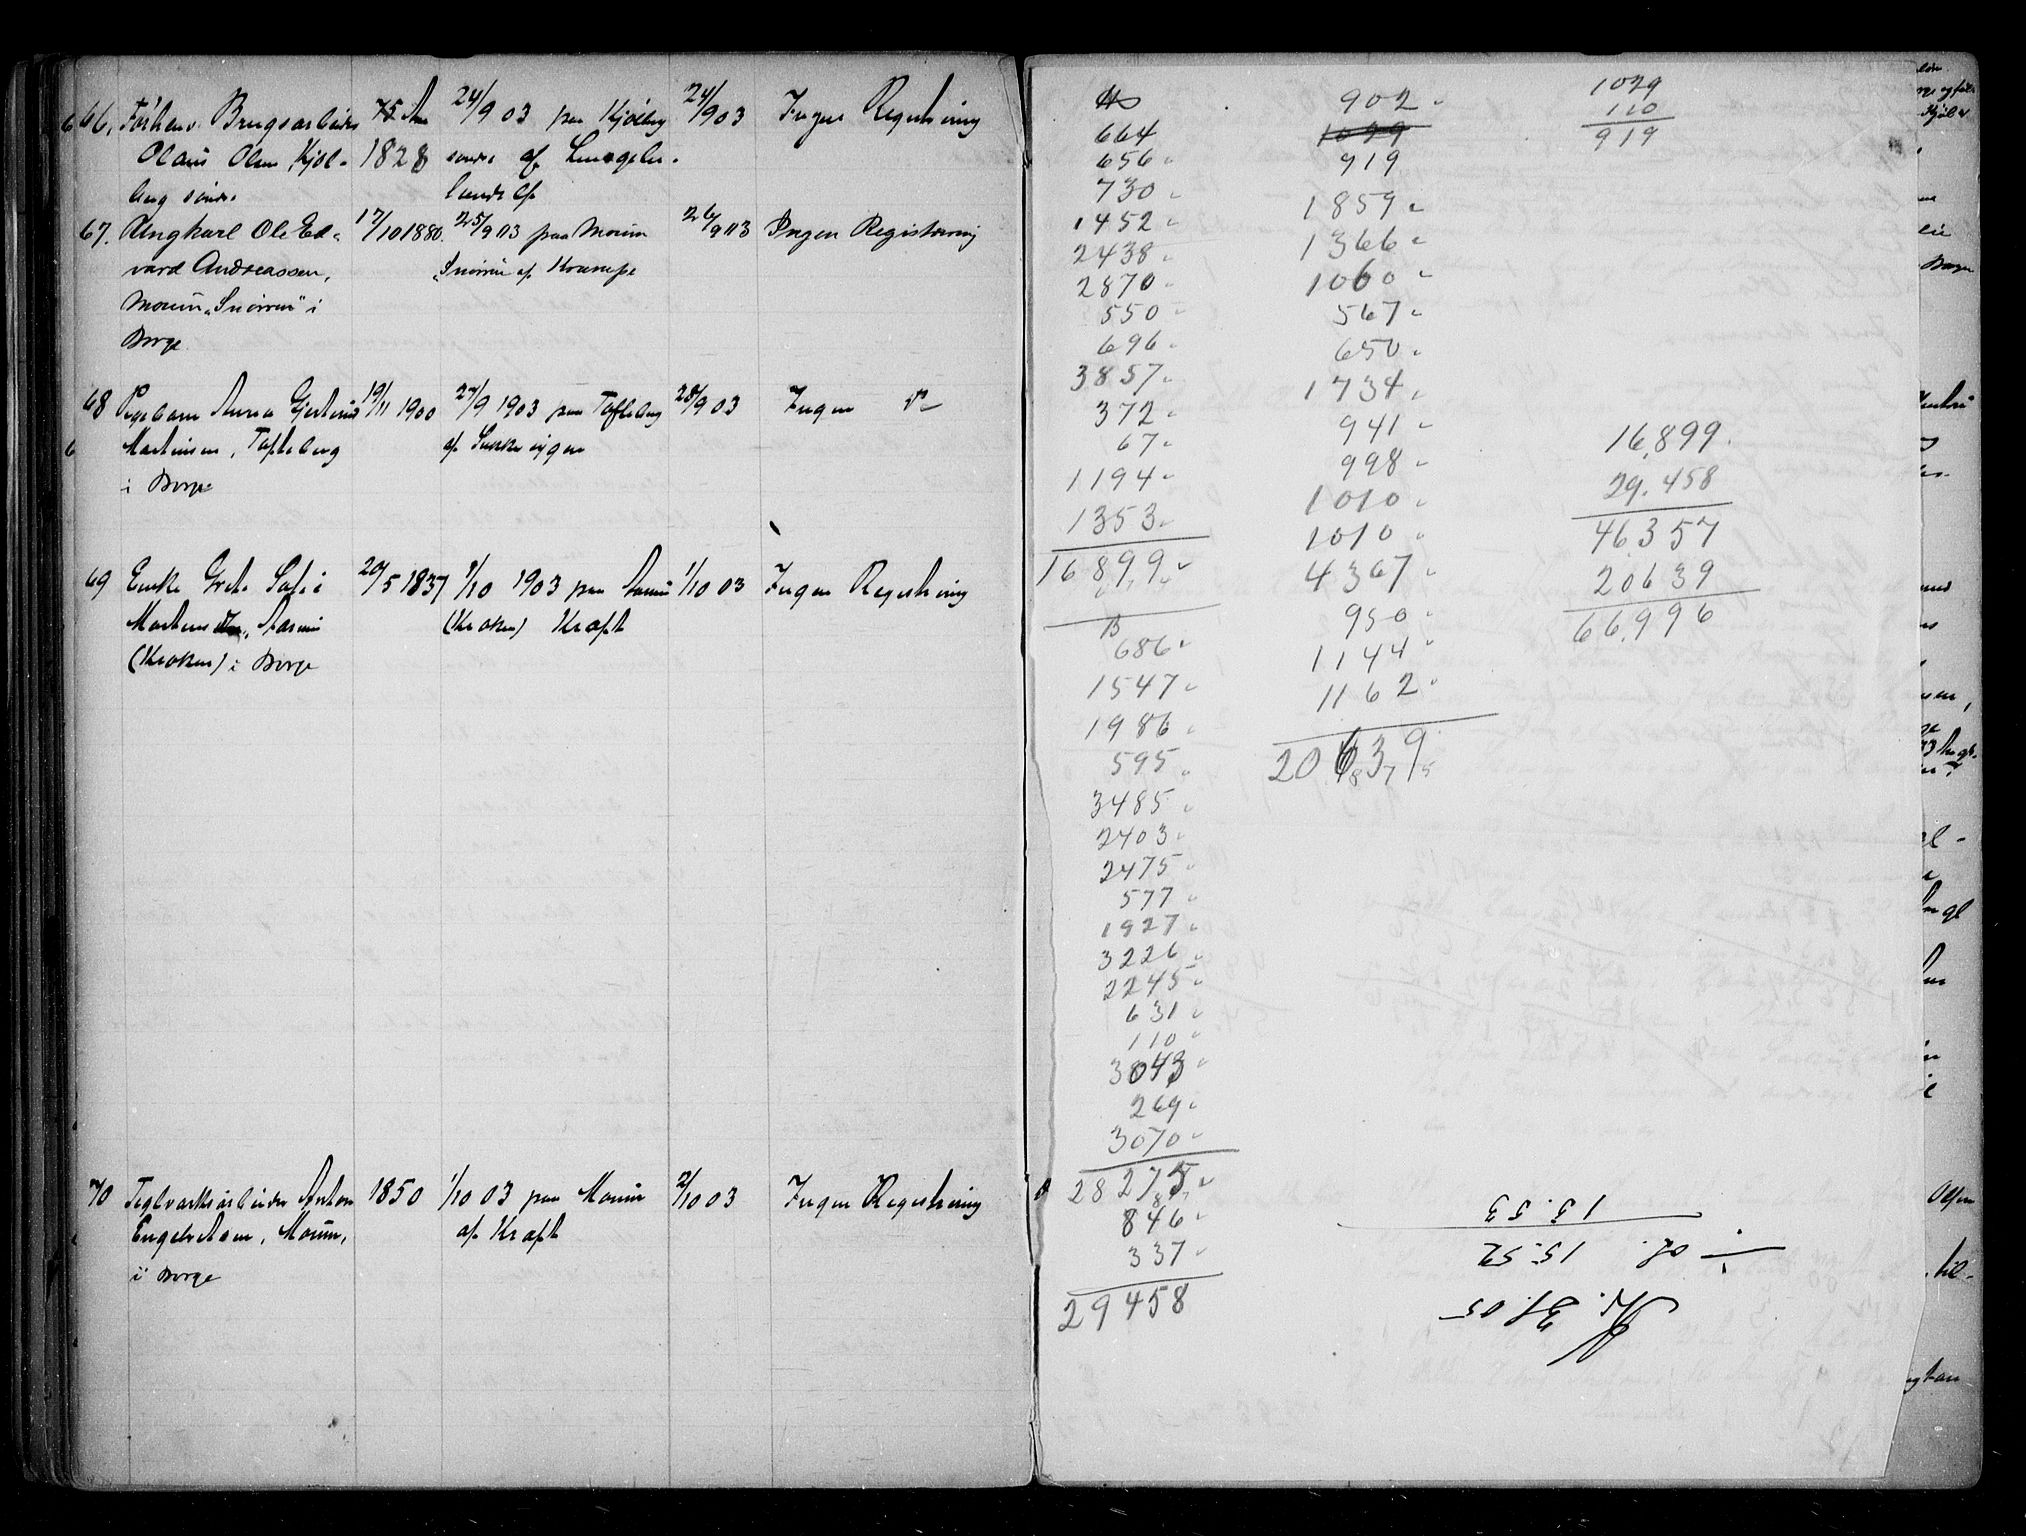 66. Forhenv. Brugsarbeider 75 Aar 24/9 03 paa Kjölberg 24/9 03 Ingen Registrering
Olaus Olsen Kjöl- 1828 söndre af Lungebe-
berg söndre
67. Ungkarl Ole Ed- 17/10 1880. 25/9 03 paa Moum 26/9 03 Ingen Registrering
vard Andreassen, af Krampe
Moum i
Borge
68 Pigebarn Anna 19/11 1900 27/9 1903 paa Tofteberg 28/9 03 Ingen
Martinsen, Tofteberg af Sukkersyge
i Borge
69 Enke Grete Sofie 20/5 1837 1/10 1903 paa 1/10 03 Ingen Registrering
(Kroken) Kræft
(Kroken) i Borge
70 Teglværksarbeider Anton 1850 1/10 03 paa Moum 2/10 03 Ingen Registrering
Engebretsen, Moum, af Kræft
i Borge
664
656
730
1452
2438
2870
550
696
3857
372
67
1194
1353
16899
B
686
1547
1986
595
3485
2403
2475
577
1927
3226
2245
631
110
3043
269
3070
28275
846
337
29458
902
1029
919
1859
1366
1060
567
650
1734
941
998
1010
1010
4367
950
1144
1162
20639
1029
110
919
16,899.
29.458
46357
20639
66.996
Kr. 31.05
15.52
15.53